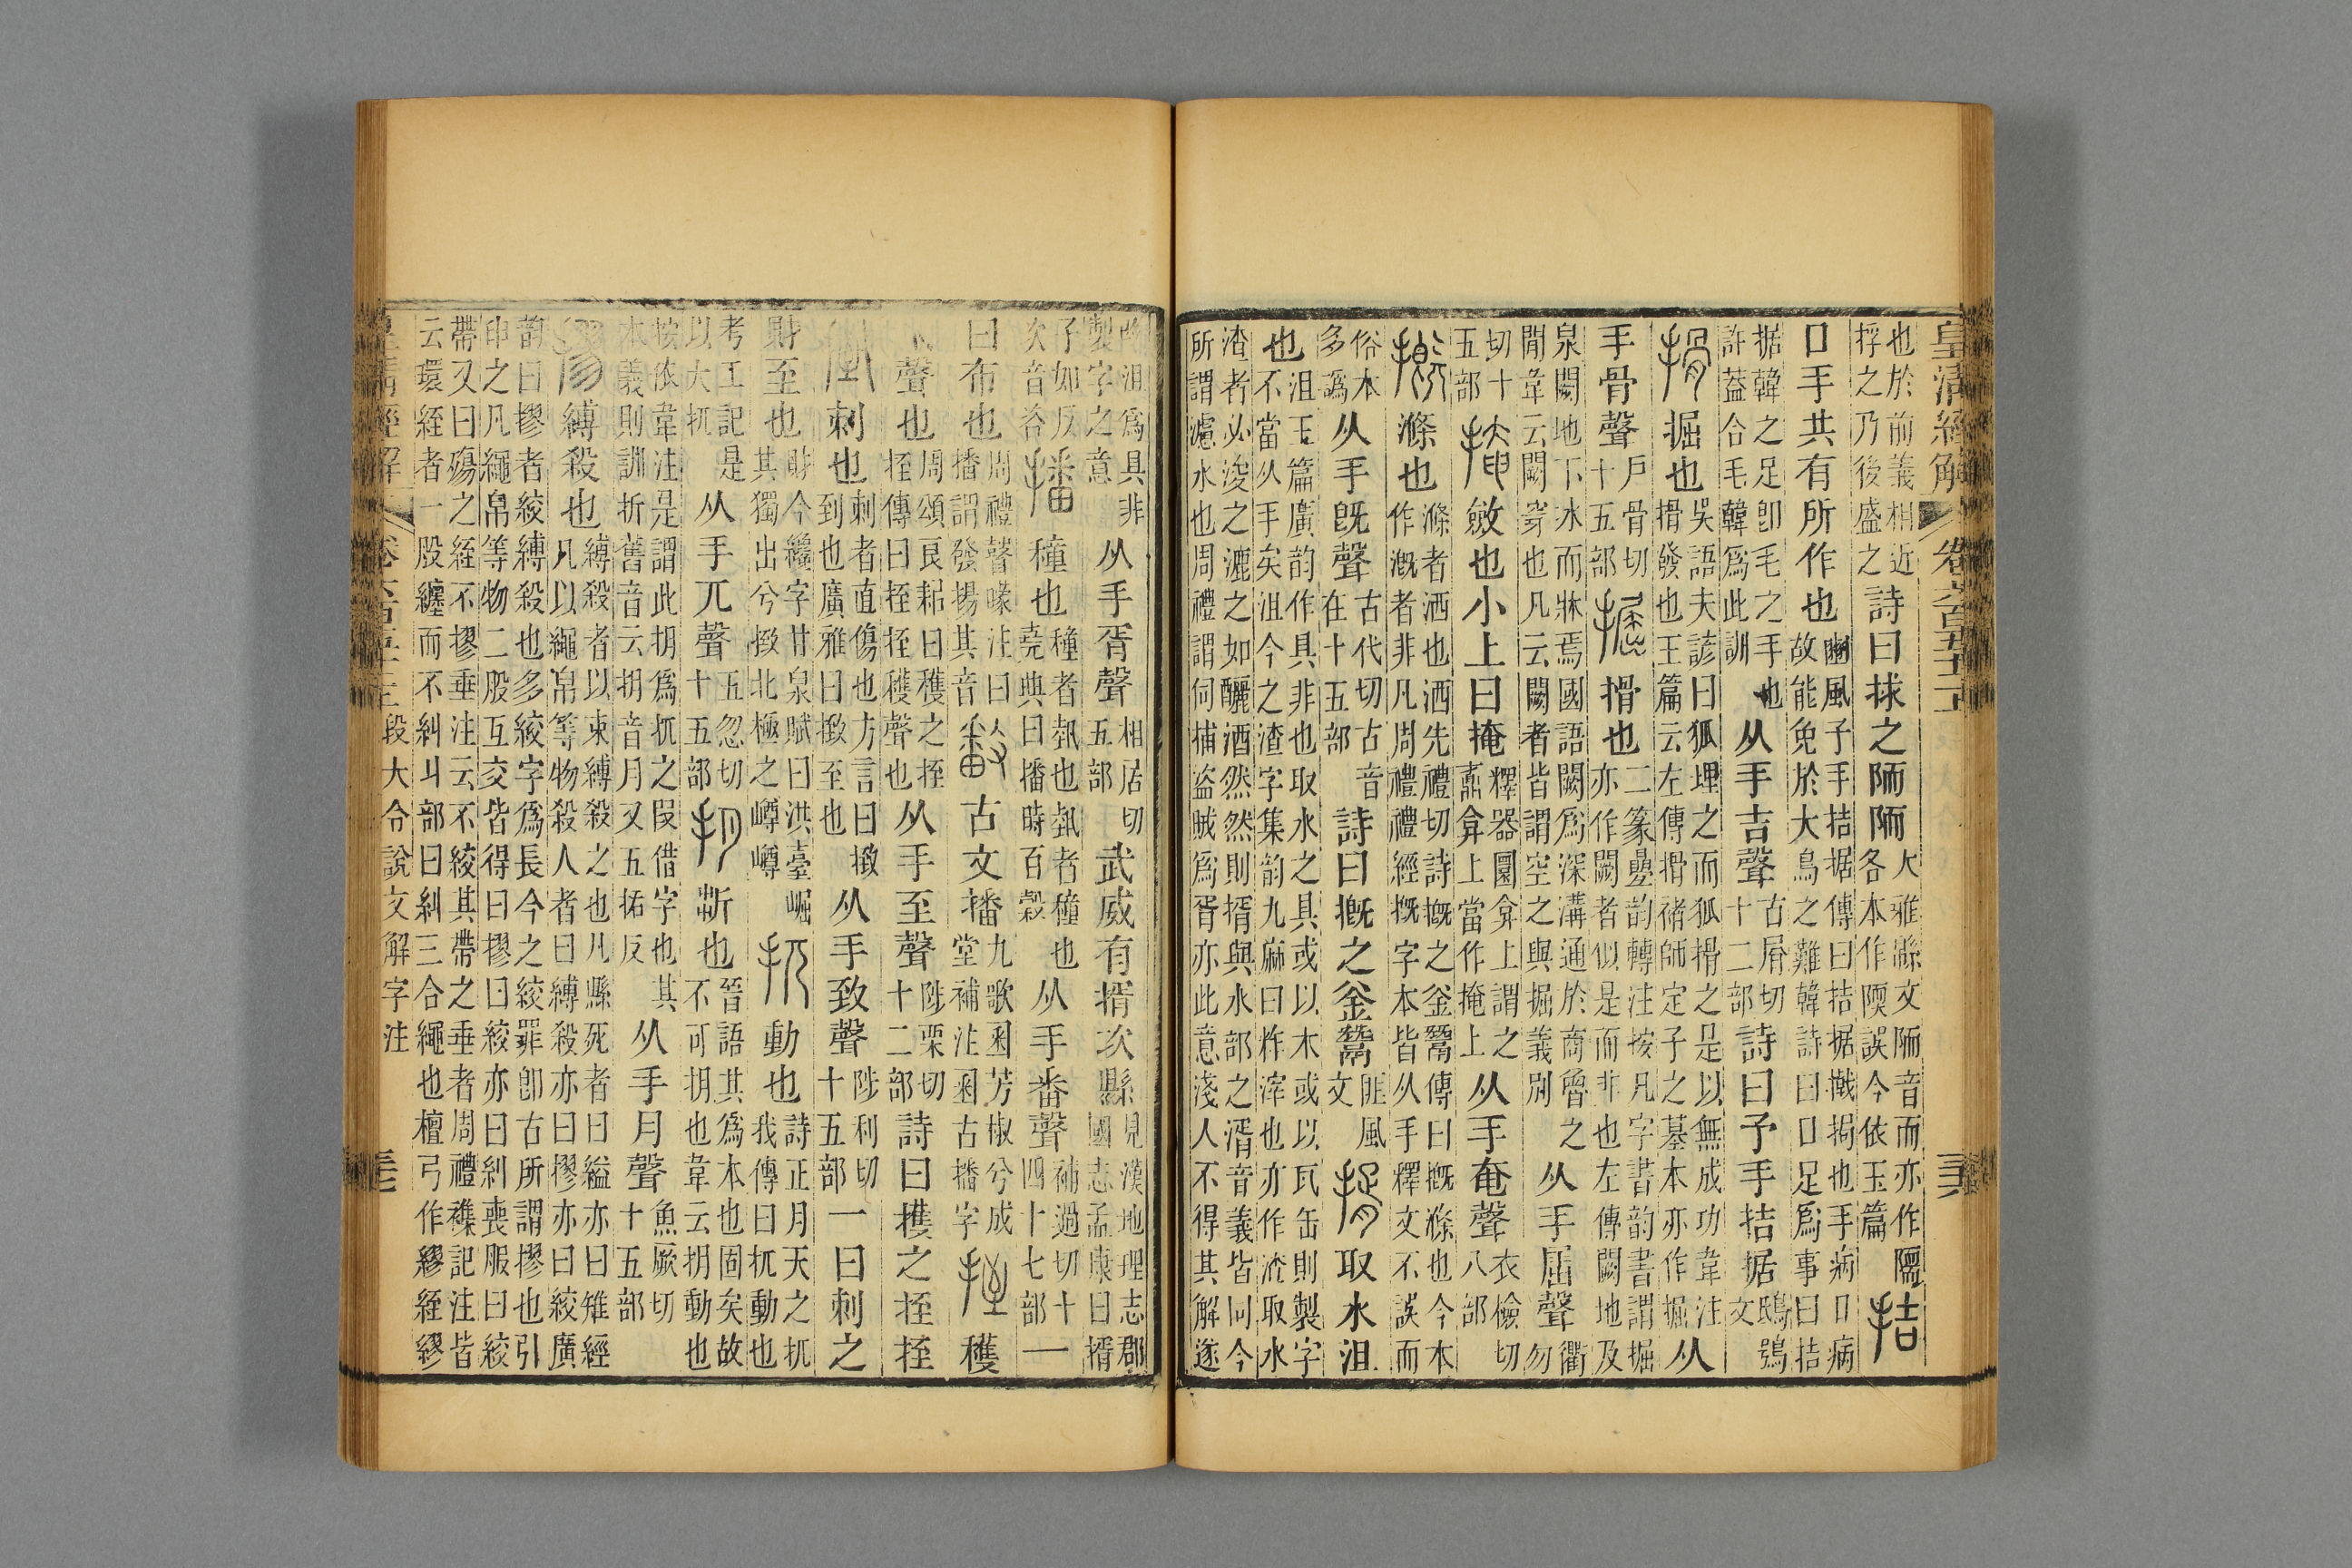 皇清經解 卷六百五十二 三六
也於前義相近捊之乃後盛之詩曰捄之陑陑大雅緜文陑音而亦作隭各本作陾誤今依玉篇拮
口手共有所作也豳風子手拮据傳曰拮据撠挶也手病口病故能免於大鳥之難韓詩曰口足爲事曰拮
据韓之足卽毛之手也許蓋合毛韓爲此訓从手吉聲古屑切十二部詩曰予手拮据鴟鴞文
搰掘也吳語夫諺曰狐埋之而狐搰之是以無成功韋注搰發也王篇云左傳搰褚師定子之墓本亦作掘从
手骨聲戶骨切十五部掘搰也二篆疊韵轉注按凡字書韵書謂掘亦作闕者似是而非也左傳闕地及
泉闕地下冰而牀焉國語闕爲深溝通於商魯之閒韋云闕穿也凡云闕者皆謂空之與掘義別从手屈聲衢勿
切十五部掩斂也小上曰掩釋器圜弇上謂之鼒弇上當作掩上从手奄聲衣檢切八部
摡滌也滌者洒也洒先禮切詩摡之釜鬵傳曰摡滌也今本作溉者非凡周禮禮經摡字本皆从手釋文不誤而
俗本多譌从手旣聲古代切古音在十五部詩曰摡之釜鬵匪風文揟取水沮
也沮玉篇廣韵作具非也取水之具或以木或以瓦缶則製字不當从手矣沮今之渣字集韵九麻曰柞滓也亦作渣取水
渣者必浚之漉之如釃酒然然則揟與水部之湑音義皆同今所謂濾水也周禮謂伺捕盜賊爲胥亦此意淺人不得其解遂
改沮爲具非製字之意从手胥聲相居切五部武威有揟次縣見漢地理志郡國志孟康曰揟
子如反次音咨播穜也穜者埶也埶者穜也堯典曰播時百穀从手番聲補過切十四十七部一
曰布也周禮瞽矇注曰播謂發揚其音𢿥古文播九歌𢿥芳椒兮成堂補注𢿥古播字挃穫
禾聲也周頌良耜曰穫之挃傳曰挃挃穫聲也从手至聲陟栗切十二部詩曰穫之挃挃
㨖刺也刺者直傷也方言曰㨖到也廣雅曰㨖至也从手致聲陟利切十五部一曰刺之
財至也財今纔字甘泉賦曰洪臺崛其獨出兮㨖北極之嶟嶟扤動也詩正月天之扤我傳曰扤動也
考工記是以大扤从手兀聲五忽切十五部抈折也晉語其爲本也固矣故不可抈也韋云抈動也
按依韋注是謂此抈爲扤之叚借字也其本義則訓折舊音云抈音月又五括反从手月聲魚厥切十五部
摎縛殺也縛殺者以束縛殺之也凡縣死者曰縊亦曰雉經凡以繩帛等物殺人者曰縛殺亦曰摎亦曰絞廣
韵曰摎者絞縛殺也多絞字爲長今之絞罪卽古所謂摎也引申之凡繩帛等物二股互交皆得曰摎曰絞亦曰糾喪服曰絞
帶又曰殤之絰不摎垂注云不絞其帶之垂者周禮襍記注皆云環絰者一股纏而不糾丩部曰糾三合繩也檀弓作繆絰繆
皇清經解 段大令說文解字注